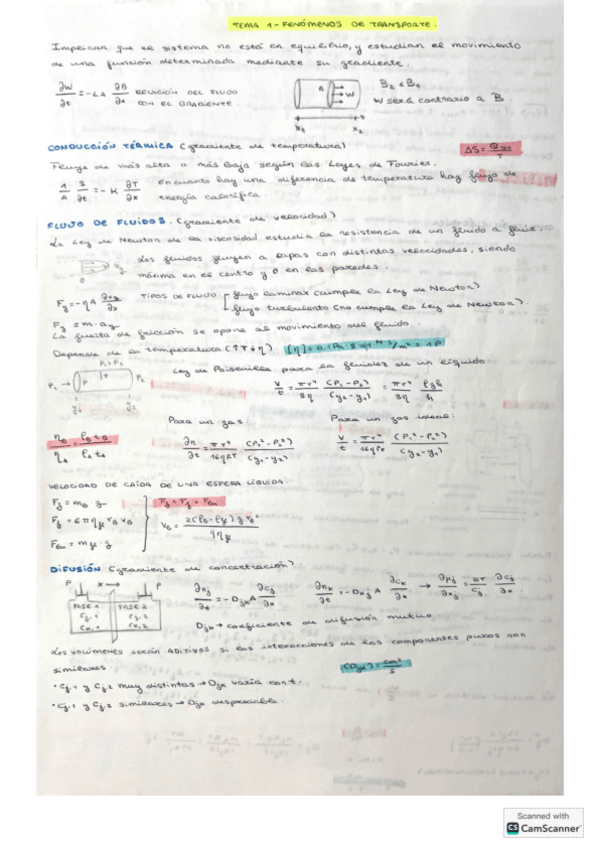 TEMA 1 - FENÓMENOS DE TRANSPORTE.
Implican que el sistema no está en equilibrio, y estudian el movimiento
de una función determinada mediante su gradiente.
∂W/∂t = -LA ∂B/∂x RELACIÓN DEL FLUJO CON EL GRADIENTE.
A W x1 x2
B2 < B1
W será contrario a B.
CONDUCCIÓN TÉRMICA (gradiente de temperatura)
Fluye de más alta a más baja según las Leyes de Fourier.
∂T/∂x en cuanto hay una diferencia de temperatura hay flujo de
energía calorífica.
FLUJO DE FLUIDOS. (gradiente de velocidad)
La Ley de Newton de la viscosidad estudia la resistencia de un fluido a fluir.
Los fluidos fluyen a capas con distintas velocidades, siendo
máxima en el centro y 0 en las paredes.
TIPOS DE FLUJO
flujo laminar (cumple la Ley de Newton)
flujo turbulento (no cumple la Ley de Newton).
La fuerza de fricción se opone al movimiento del fluido.
Depende de la temperatura (↑T ↓η).
Ley de Poiseuille para la fluidez de un líquido
V/t = πr⁴/8η (P1-P2)/(y2-y1) = πr⁴/8η ρgh/h
Para un gas:
Para un gas ideal:
VELOCIDAD DE CAÍDA DE UNA ESFERA LÍQUIDA.
DIFUSIÓN (gradiente de concentración).
FASE 1 FASE 2
Cj,1 Cj,2
Ck,1 Ck,2
Djk → coeficiente de difusión mutuo
Los volúmenes serán ADITIVOS si las interacciones de los componentes puros son
similares.
(Djk) = cm²/s
· Cj,1 y Cj,2 muy distintas → Djk varía cont.
· Cj,1 y Cj,2 similares → Djk despreciable.
Scanned with
CS CamScanner